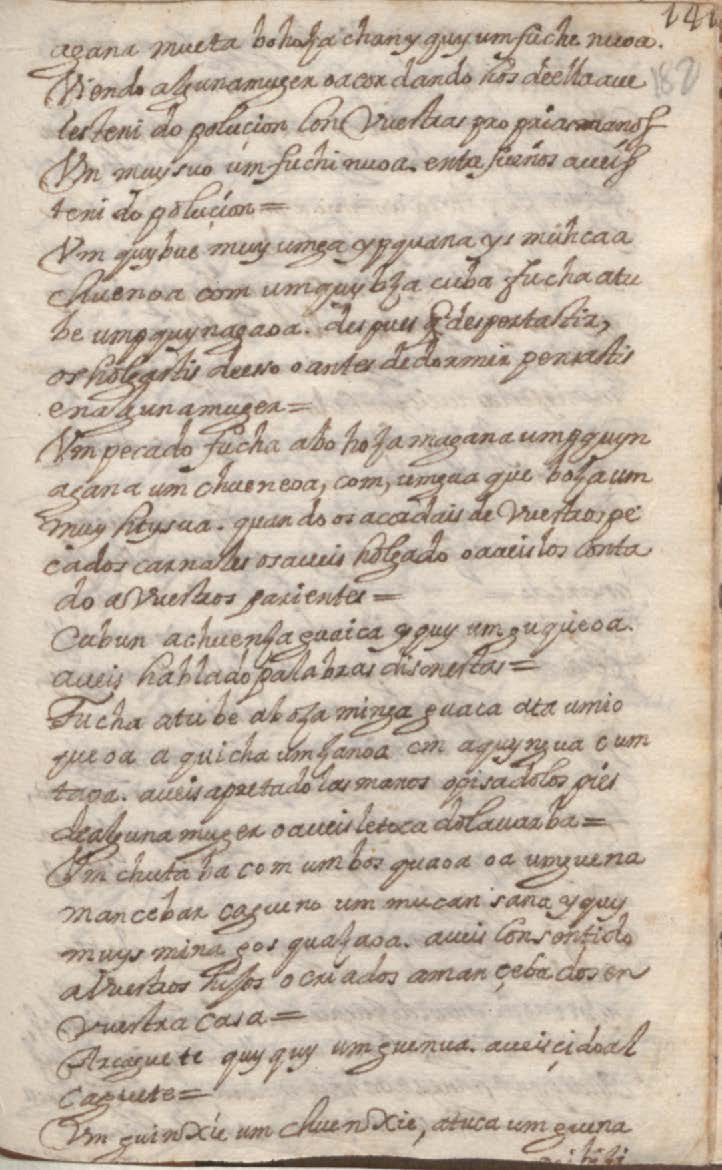 141
182
agana mueta bohoza chan y quy um fuche nuoa.
Viendo alguna muger o acordando hos de ella aue
les tenido polucion Con Vuestras propias manos
Vm muysuo um fuchinuoa. entre sueños aueis
tenido polucion =
Vm quybue muy umga ypquana ys mûhcaa
chuenoa com umquy bza cuba fucha atu
be umpquynagaoa. despues q despertastis,
os holgastis de eso o antes de dormir pensastis
en alguna muger =
Vm pecado fucha abohoza magana umpquyn
agana um chueneoa, com, umgua que boza um
muy htysua. quando os acordais de Vuestros pe
cados carnales os aueis holgado o aueislos conta
do a Vuestros parientes =
Cubun achuenza guaica yquy um guqueoa.
aueis hablado palabras disonestas =
Fucha atube aboza minga guaca ata umio
queoa a quicha umzanoa om aquyngua e um
taga. aueis apretado las manos o pisado los pies
de alguna muger o aueisle tocado la uarba =
Vm chuta ba com um bos quaoa oa umguena
mancebar cagueno um mucan sana yquy
muys mina gos quazaoa. aueis Consentido
a Vuestros hijos o criados amançebados en
Vuestra casa =
Arcaguete quy quy umguenua. aueis çido al
caguete =
Vm guinxie um chuenxie, atuca umguena